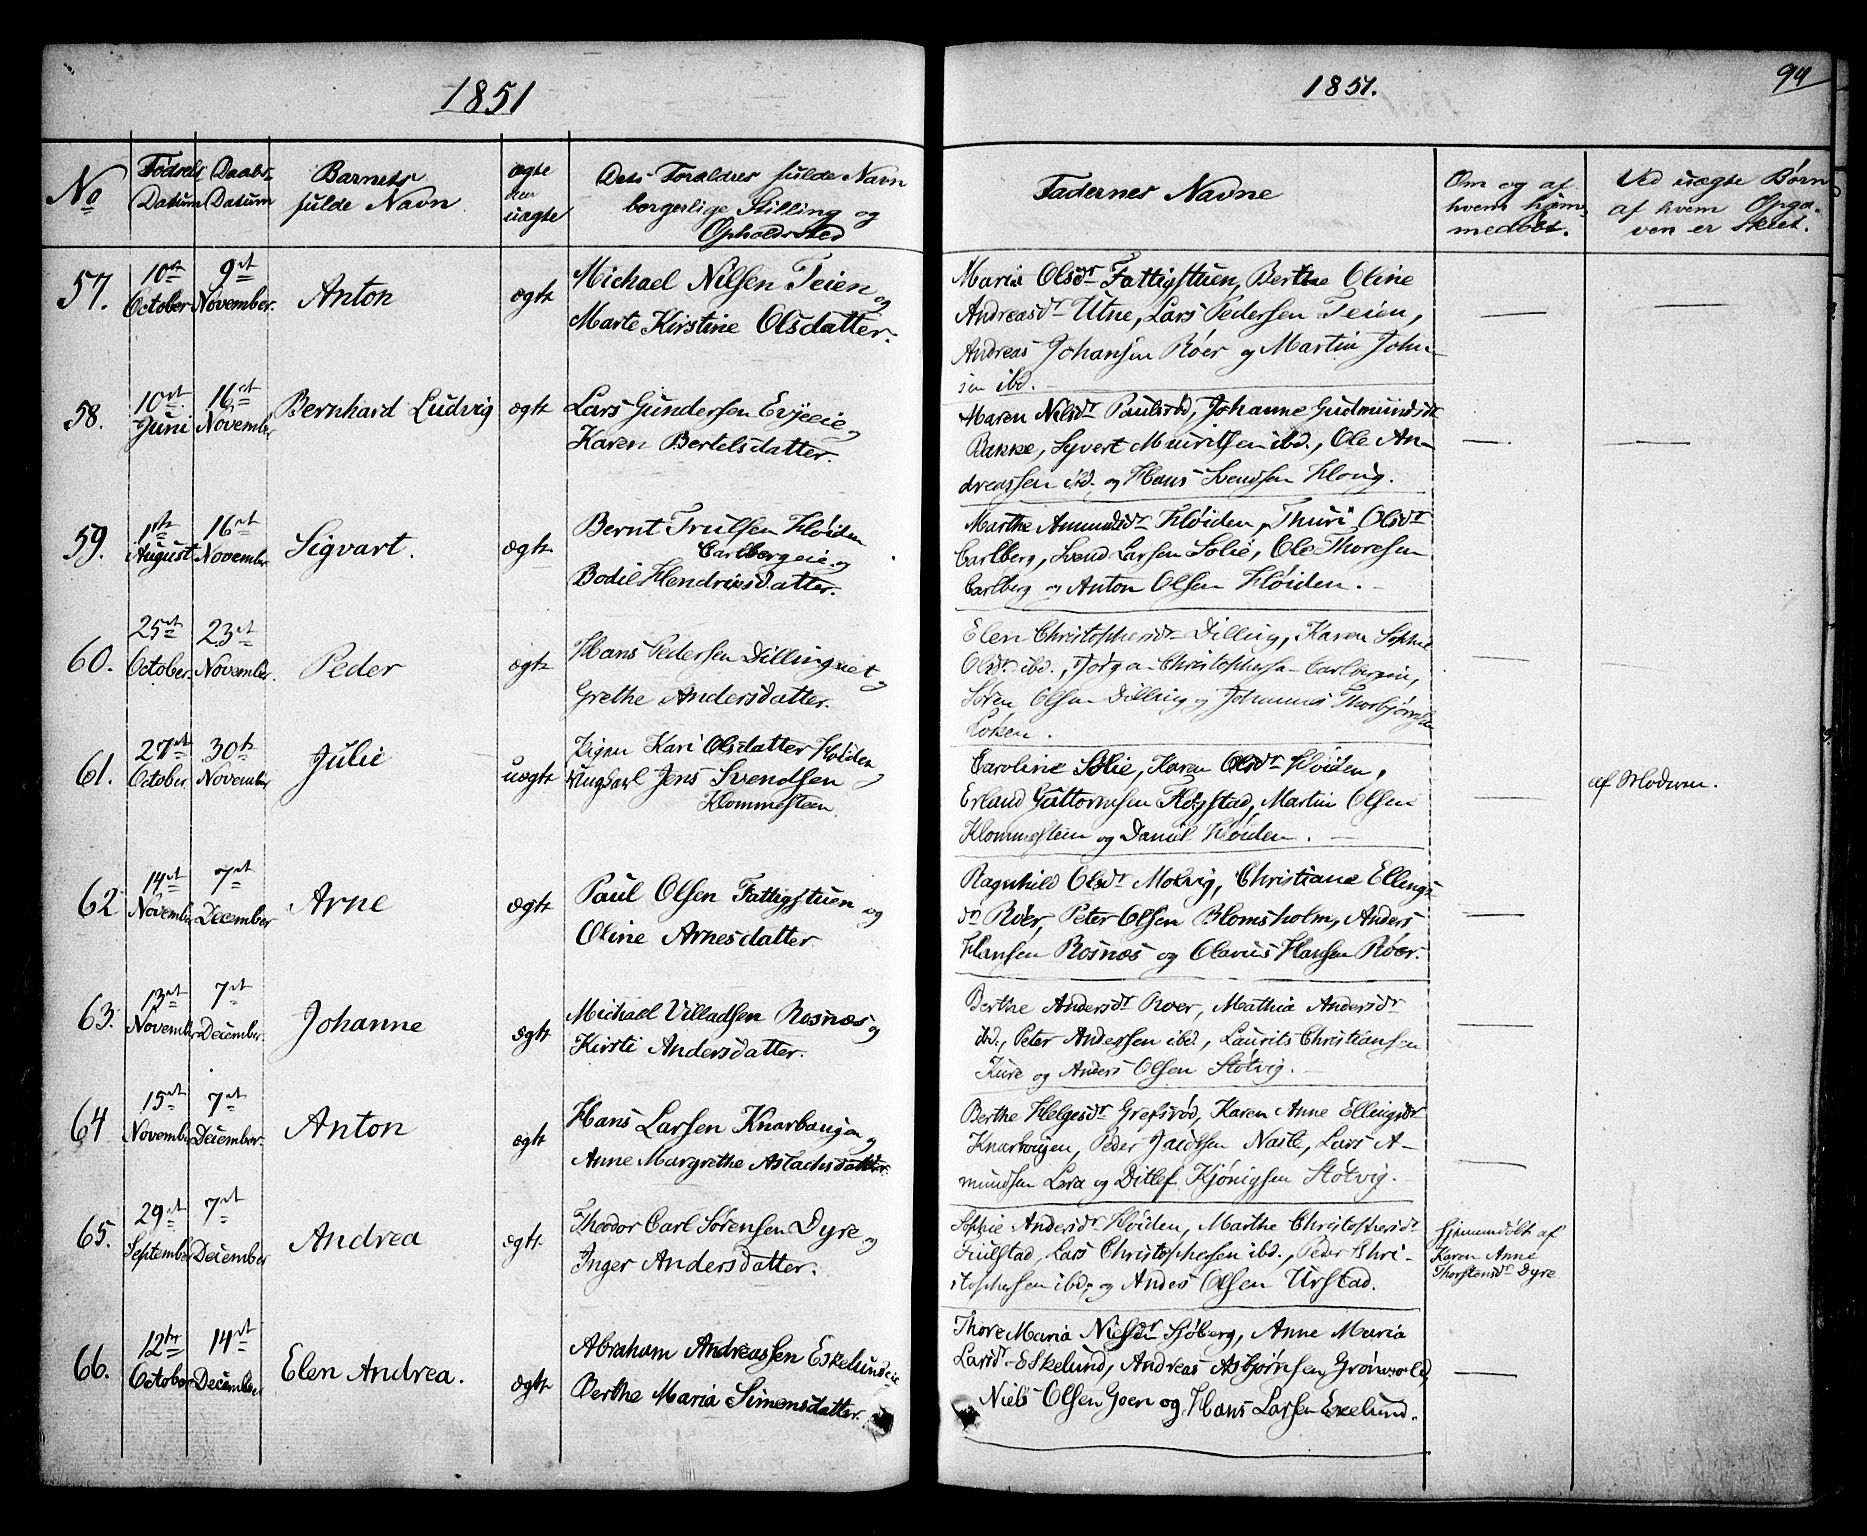 1851
No
Fødsels Datum
Daabs Datum
Barnets fulde Navn
ægte eller uægte
Dets Forældres fulde Navn
borgerlige Stilling og
Opholdssted
57.
10de October
9de November.
Anton
ægte
Michael Nilsen Teien og
Marte Kirstine Olsdatter.
58.
10de Juni
16de November
Bernhard Ludvig
ægte
Lars Gundersen Evjeeie og
Karen Bertelsdatter.
59.
1ste August
16de November
Sigvart.
ægte
Bernt Trulsen Kløiden
Carlbergeie og
Bodil Hendriesdatter.
60.
25de October.
23de November.
Peder
ægte
Hans Pedersen Dillingeiet og
Grethe Andersdatter.
61.
27de October
30te November
Julie
uægte
Pigen Kari Olsdatter Kløiden og
Ungkarl Jens Svendsen
Klommesteen.
62
14de November
7de December
Arne
ægte
Paul Olsen Fattigstuen og
Oline Arnesdatter
63.
13de November
7de December.
Johanne
ægte
Michael Villadsen Rosnæs og
Kirsti Andersdatter.
64
15de November
7de December.
Anton
ægte
Hans Larsen Knarbaugen og
Anne Margrethe Aslachsdatter.
65.
29de September
7de December
Andrea
ægte
Theodor Carl Sørensen Dyre og
Inger Andersdatter.
66.
12te October
14de December
Elen Andrea.
ægte
Abraham Andreassen Eskelundeie
Berthe Maria Simensdatter.
1851.
94
Faddernes Navne
Om og af
hvem hjem-
medøbt.
Ved uægte Børn
af hvem Opga-
ven er skeet.
Maria Olsdr Fattigstuen, Berthe Oline
Andreasdr Utne, Lars Pedersen Teien,
Andreas Johansen Røer og Martin Johan-
sen ibd.
Maren Nilsdr Paulsrød, Johanne Gudmundsdr
Bakke, Syvert Muritsen ibd., Ole An-
dreassen ibd. og Hans Svendsen Klong.
Marthe Amundsdr Kløiden, Thuri Olsdr
Carlberg, Svend Larsen Solie, Ole Thoresen
Carlberg og Anton Olsen Kløiden.
Elen Christophersdr Dilling, Karen Sophie
Olsdr ibd., Jørgan Christophersen Carlbergeie,
Søren Olsen Dilling og Johannes Thorbjørnsen
Løken.
Caroline Solie, Karen Olsdr Kløiden,
Erland Guttormsen Høgstad, Martin Olsen
Klommesteen og Daniel Kløiden.
af Moderen.
Ragnhild Olsdr Molvig, Christiane Ellings-
dr Røer, Peter Olsen Blomsholm, Anders
Hansen Rosnæs og Olavus Hansen Røer.
Berthe Andersdr Roer, Mathia Andersdr
ibd., Peter Anderssen ibd., Laurits Christiansen
Kure og Anders Olsen Støtvig.
Berthe Helgesdr Grefsrød, Karen Anne Ellingsdr
Knarbaugen, Peder Jacobsen Nasle, Lars A-
mundsen Lera og Ditlef Kjønigsen Støtvig.
Sophie Andersdr Kløiden, Marthe Christophersdr
Fuilstad, Lars Christophersen ibd., Peder Chri-
stophersen ibd. og Anders Olsen Urstad.
Hjemmedøbt af
Karen Anne
Thorstensdr Dyre
Thore Maria Nielsdr Sjøberg, Anne Maria
Larsdr Eskelund, Andreas Asbjørnsen Grønvold,
Niels Olsen Goen og Hans Larsen Eskelund.